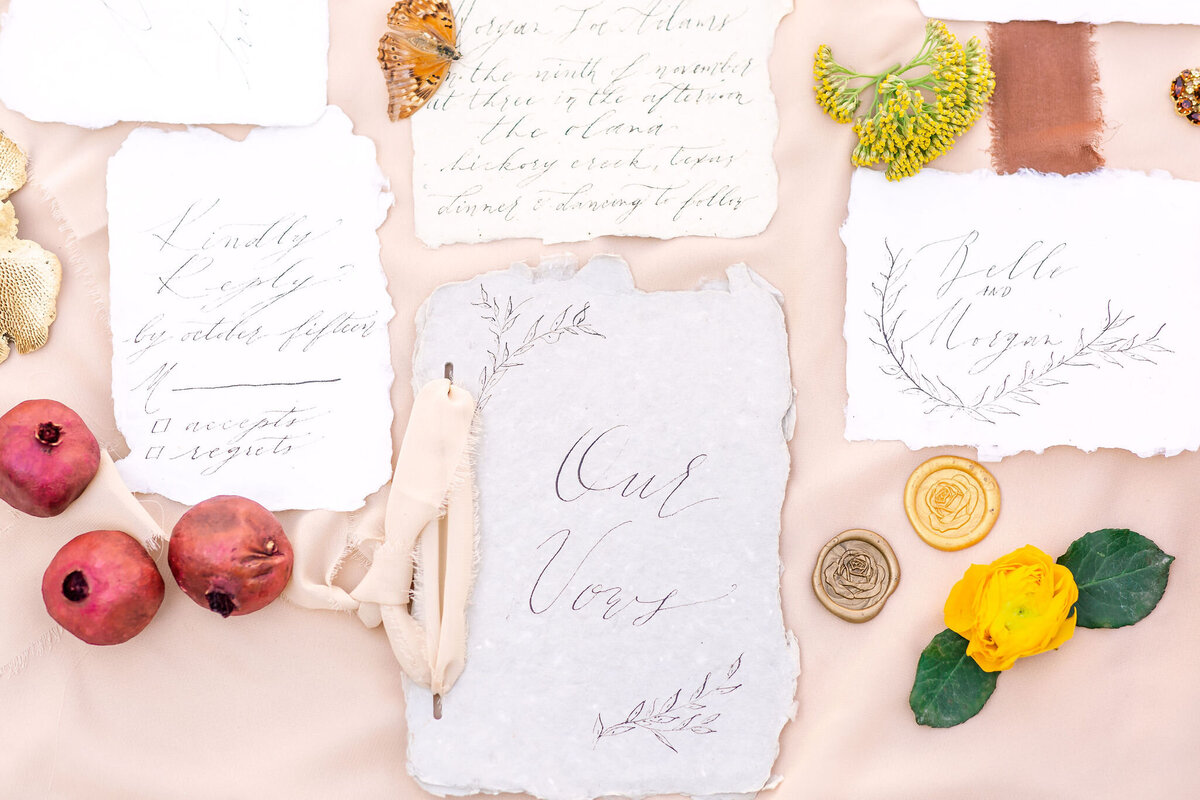 Morgan Joe Adams
on the ninth of november
at three in the afternoon
the olana
hickory creek, texas
dinner & dancing to follow
Kindly
Reply
by october fifteen
M
accepts
regrets
Our
Vows
Belle
AND
Morgan